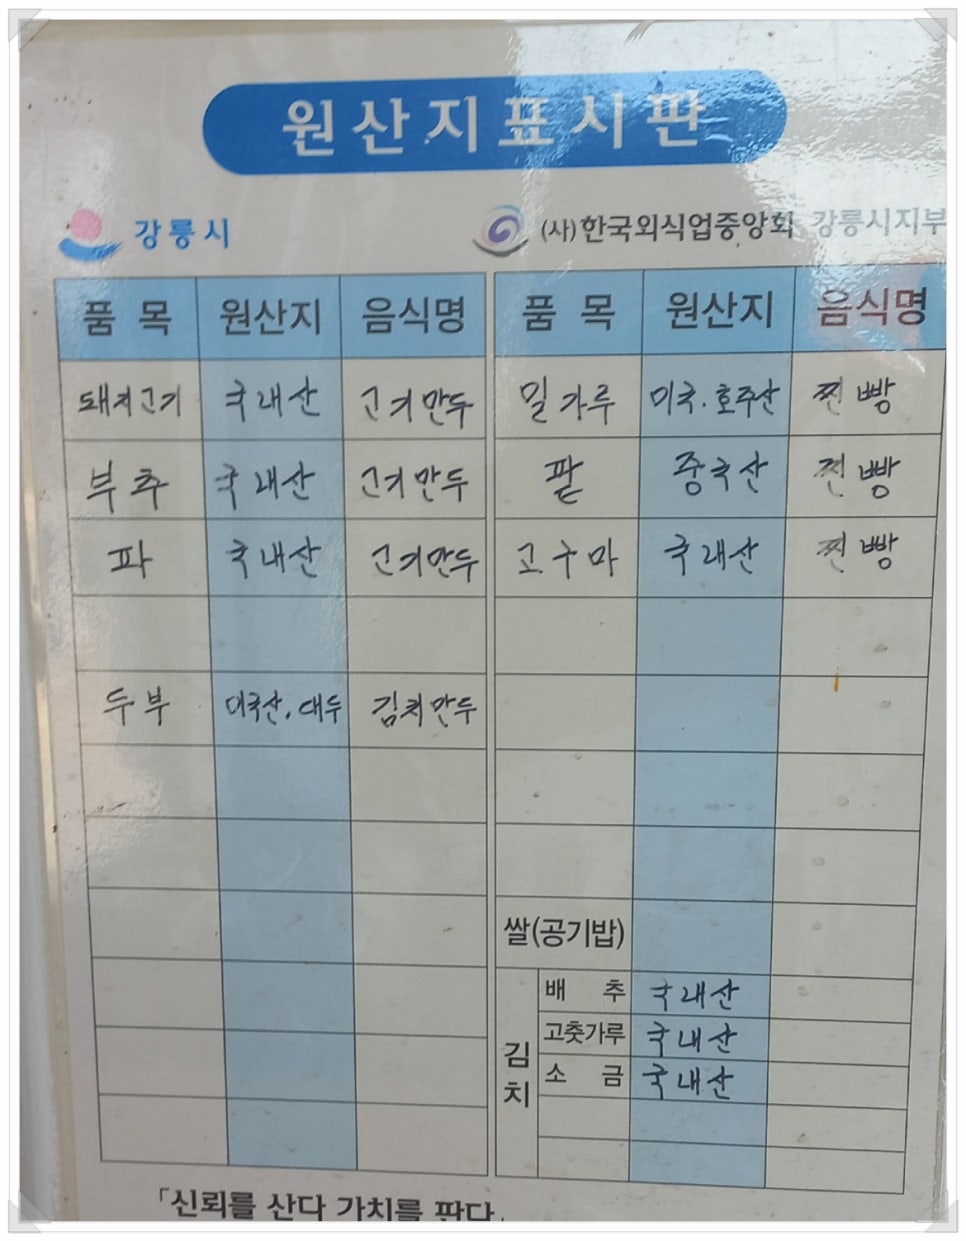 원산지표시판
강릉시
(사)한국외식업중앙회 강릉시지부
품 목 원산지 음식명 품 목 원산지 음식명
돼지고기 국내산 고기만두 밀가루 미국.호주산 찐빵
부추 국내산 고기만두 팥 중국산 찐빵
파 국내산 고기만두 고구마 국내산 찐빵
두부 미국산, 대두 김치만두
쌀(공기밥)
김치
배 추 국내산
고춧가루 국내산
소 금 국내산
「신뢰를 산다 가치를 판다」